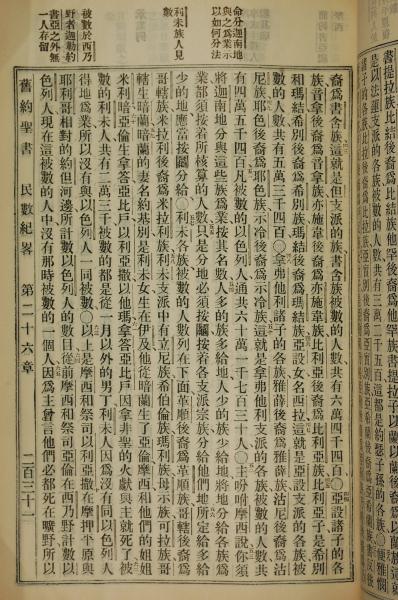 是以法蓮支派的各族被數的人數共有三萬二千五百這都是約瑟子孫的各族○便雅憫
裔爲書含族這就是但支派的族書含族被數的人數共有六萬四千四百○亞設諸子的各
族音拿後裔爲音拿族亦施韋後裔爲亦施韋族比利亞後裔爲比利亞族比利亞子是希別
和瑪結希別後裔爲希別族瑪結後裔爲瑪結族亞設女名西拉這就是亞設支派的各族被
數的人數共有五萬三千四百○拿弗他利諸子的各族雅薛後裔爲雅薛族沽尼後裔爲沽
尼族耶色後裔爲耶色族示冷後裔爲示冷族這就是拿弗他利支派的各族被數的人數共
命分迦南地
與之爲業示
以如何分法
有四萬五千四百凡被數的以色列人通共六十萬一千七百三十人○主吩咐摩西說你須
將迦南地分與這些族爲業按其名數人多的族多給地人少的族少給地將地分給各族爲
業都須按着所核算的人數只是分地必須按鬮按着各支派宗族分給他們地所定給多給
利未族人見
數
少的地應當按鬮分給○利未各族被數的人數列在下面革順後裔爲革順族哥轄後裔爲
哥轄族米拉利後裔爲米拉利族利未支派中有立尼族希伯倫族瑪利族母示族可拉族哥
轄生暗蘭暗蘭的妻名約基別是利未女生在伊及他從暗蘭生了亞倫摩西和他們的姐姐
米利暗亞倫生拿答亞比戶以利亞撒以他瑪拿答亞比戶因拿非聖的火獻與主就死了被
數的利未人共有二萬三千被數的都是從一月以外的男丁利未人因爲沒有同以色列人
得地爲業所以沒有與以色列人一同被數○以上是摩西和祭司以利亞撒在摩押平原與
被數於西乃
野者迦勒約
書亞之外無
一人存留
耶利哥相對的約但河邊所計數以色列人的數目從前摩西和祭司亞倫在西乃野計數以
色列人現在這被數的人中沒有那時被數的一個人因爲主曾言他們必都死在曠野所以
舊約聖書 民數紀畧 第二十六章 二百三十一